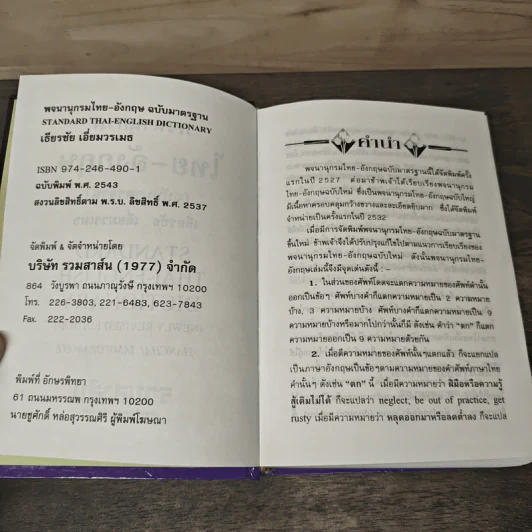 พจนานุกรมไทย-อังกฤษ ฉบับมาตรฐาน
STANDARD THAI-ENGLISH DICTIONARY
เธียรชัย เอี่ยมวรเมธ
ISBN 974-246-490-1
ฉบับพิมพ์ พ.ศ. 2543
สงวนลิขสิทธิ์ตาม พ.ร.บ. ลิขสิทธิ์ พ.ศ. 2537
จัดพิมพ์ & จัดจำหน่ายโดย
บริษัท รวมสาส์น (1977) จำกัด
864 วังบูรพา ถนนภาณุรังษี กรุงเทพฯ 10200
โทร. 226-3803, 221-6483, 623-7843
Fax. 222-2036
พิมพ์ที่ อักษรพิทยา
61 ถนนมหรรณพ กรุงเทพฯ 10200
นายชูศักดิ์ หล่อสุวรรณศิริ ผู้พิมพ์โฆษณา
คำนำ
พจนานุกรมไทย-อังกฤษฉบับมาตรฐานนี้ได้จัดพิมพ์ครั้ง
แรกในปี 2527 ต่อมาข้าพเจ้าได้เรียบเรียงพจนานุกรม
ไทย-อังกฤษฉบับใหม่ ซึ่งเป็นพจนานุกรมไทย-อังกฤษฉบับใหญ่
มีเนื้อหาครอบคลุมกว้างขวางและละเอียดยิบมาก ซึ่งได้จัดพิมพ์
จำหน่ายเป็นครั้งแรกในปี 2532
เมื่อมีการจัดพิมพ์พจนานุกรมไทย-อังกฤษฉบับมาตรฐาน
ขึ้นใหม่ ข้าพเจ้าจึงได้ปรับปรุงแก้ไขไปตามแนวการเรียบเรียงของ
พจนานุกรมไทย-อังกฤษฉบับใหม่ ดังนั้นพจนานุกรมไทย-
อังกฤษเล่มนี้จึงมีจุดเด่นดังนี้ :-
1. ในส่วนของศัพท์ได้ตแดกความหมายของศัพท์คำนั้น
ออกเป็นข้อๆ ศัพท์บางคำก็แตกความหมายเป็น 2 ความหมาย
บ้าง, 3 ความหมายบ้าง ศัพท์บางคำก็แตกความหมายเป็น 9
ความหมายบ้างหรือมากไปกว่านั้นก็มี ดังเช่น คำว่า "ตก" ก็แตก
ความหมายออกเป็น 9 ความหมายด้วยกัน
2. เมื่อตีความหมายของศัพท์นั้นๆแตกแล้ว ก็จะแยกแปล
เป็นภาษาอังกฤษเป็นข้อๆตามความหมายของคำศัพท์ภาษาไทย
คำนั้นๆ ดังเช่น "ตก" นี้ เมื่อมีความหมายว่า ฝีมือหรือความรู้
สู้เดิมไม่ได้ ก็จะแปลว่า neglect, be out of practice, get
rusty เมื่อมีความหมายว่า หลุดออกมาหรือลดต่ำลง ก็จะแปล